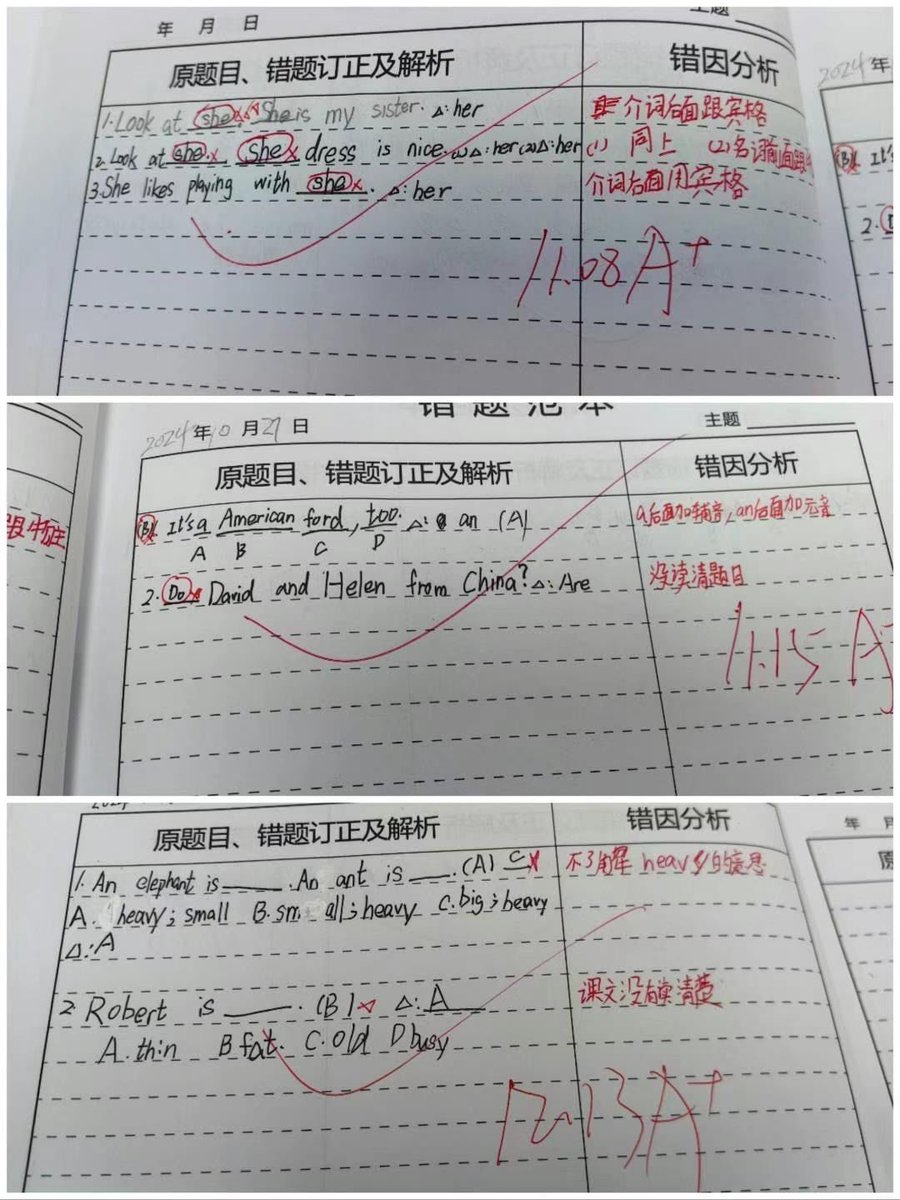 年 月 日
主题
2024年
原题目、错题订正及解析
错因分析
1.Look at she. She is my sister. △:her
介词后面跟宾格
2. Look at she. She dress is nice. (1)△:her (2)△:her
(1) 同上 (2)名词前面跟
3.She likes playing with she. △:her
介词后面用宾格
B It's
2.
11.08 A+
错题范本
2024年10月27日
主题
原题目、错题订正及解析
错因分析
B 1. It's a American ford, too. △: an (A)
A B C D
a后面加辅音,an后面加元音
2. Do David and Helen from China? △: Are
没读清题目
11.15 A
原题目、错题订正及解析
错因分析
年 月
1. An elephant is ____. An ant is ____. (A) C
不了解 heavy的意思
A. heavy; small B. small; heavy C. big; heavy
△:A
2 Robert is ____. (B) △: A
课文没有读清楚
A. thin B fat. C. old D busy
12.13 A+